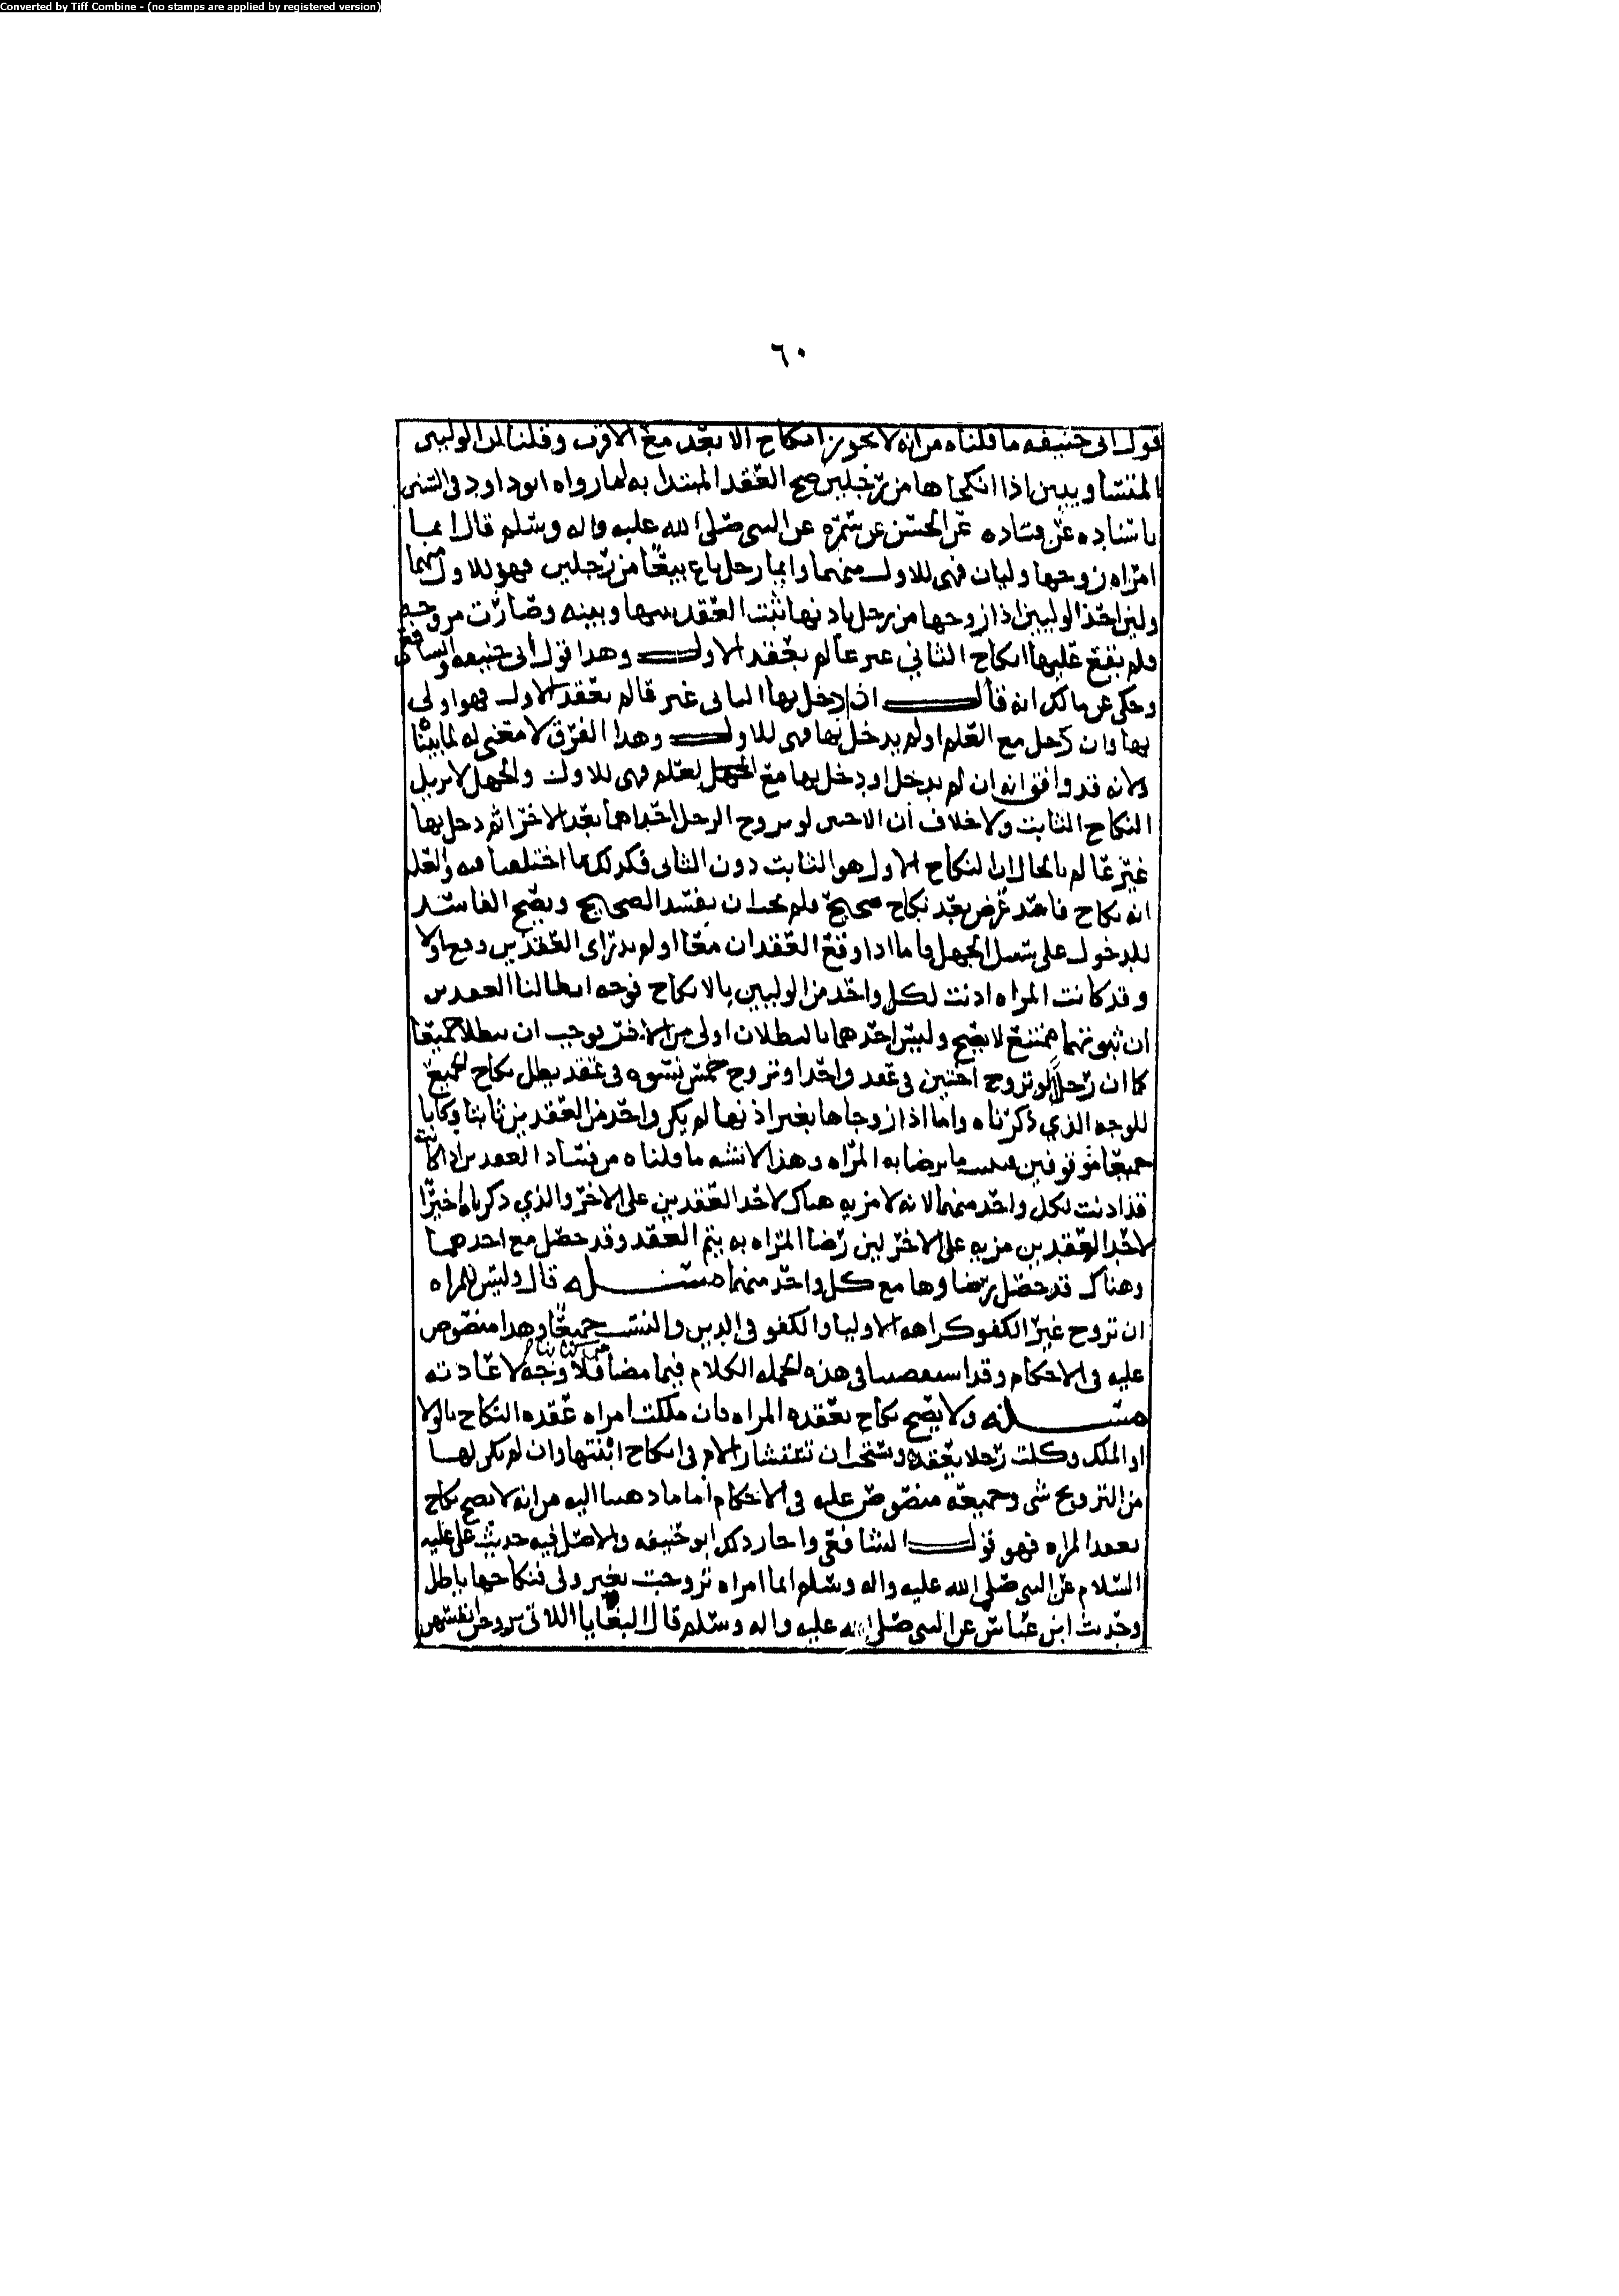 Converted by Tiff Combine - (no stamps are applied by registered version)
٦٠
قول ابي حنيفه ما قلناه من انه لا يجوز انكاح الابعد مع الاقرب وقلنا ان الوليين
المتساويين اذا انكحاها من رجلين صح العقد المبتدا به لما رواه ابو داود في السنن
باسناده عن قتاده عن الحسن عن سمره عن النبي صلى الله عليه واله وسلم قال ايما
امراه زوجها وليان فهي للاول منهما وايما رجل باع بيعا من رجلين فهو للاول منهما
ولان احد الوليين اذا زوجها من رجل باذنها ثبت العقد بينها وبينه وصارت زوجته
ولم يقع عليها انكاح الثاني غير عالم بعقد الاول وهذا قول ابي حنيفه والشافعي
وحكي عن مالك انه قال ان دخل بها الثاني غير عالم بعقد الاول فهو اولى
بها وان دخل مع العلم او لم يدخل بها فهي للاول وهذا الفرق لا معنى له لما بينا
ولانه قد وافق انه ان لم يدخل او دخل بها مع العلم فهي للاول والجهل لا يزيل
النكاح الثابت ولا خلاف ان الاختين لو تزوج الرجل احداهما بعد الاخرى ثم دخل بها
غير عالم بالحال ان النكاح الاول هو الثابت دون الثاني فكذلك ما اختلفنا فيه والعله
انه نكاح فاسد عرض بعد نكاح صحيح فلم يجب ان يفسد الصحيح ويصح الفاسد
للدخول على سبيل الجهل فاما اذا وقع العقدان معا او لم يدر اي العقدين وقع اولا
وقد كانت المراه اذنت لكل واحد من الوليين بالانكاح فوجه ابطالنا العقدين
ان ثبوتهما ممتنع لا يصح وليس احدهما بالبطلان اولى من الاخر يوجب ان يبطلا جميعا
كما ان رجلا لو تزوج اختين في عقد واحد او تزوج خمس نسوه في عقد بطل نكاح الجميع
للوجه الذي ذكرناه واما اذا زوجاها بغير اذنها لم يكن واحد من العقدين ثابتا وكانا
جميعا موقوفين ما يرضا به المراه وهذا لا يشبه ما قلناه من فساد العقدين اذ لانه
قد اذنت لكل واحد منهما لانه لا مزيه هناك لاحد العقدين على الاخر والذي ذكرناه اخيرا
لاحد العقدين مزيه على الاخر لان رضا المراه به يتم العقد وقد حصل مع احدهما
وهناك قد حصل رضاوها مع كل واحد منهما مسئله قال وليس لامراه
ان تزوج غير الكفو كراهه الاوليا والكفو في الدين والنسب جميعا وهذا منصوص
عليه في الاحكام وقد استقصينا في هذه الجمله الكلام فيما مضا فلا وجه لاعادته
مسئله ولا يصح نكاح بعقده المراه فان ملكت امراه عقده النكاح بالولا
او الملك وكلت رجلا يعقده ويستحب ان تستشار الام في انكاح ابنتها وان لم يكن لها
من التزويج شي وجميعه منصوص عليه في الاحكام اما ما ذهبنا اليه من انه لا يصح نكاح
بعقد المراه فهو قول الشافعي واجاز ذلك ابو حنيفه والاصل فيه حديث علي عليه
السلام عن النبي صلى الله عليه واله وسلم ايما امراه تزوجت بغير ولي فنكاحها باطل
وحديث ابن عباس عن النبي صلى الله عليه واله وسلم قال البغايا اللاتي يزوجن انفسهن